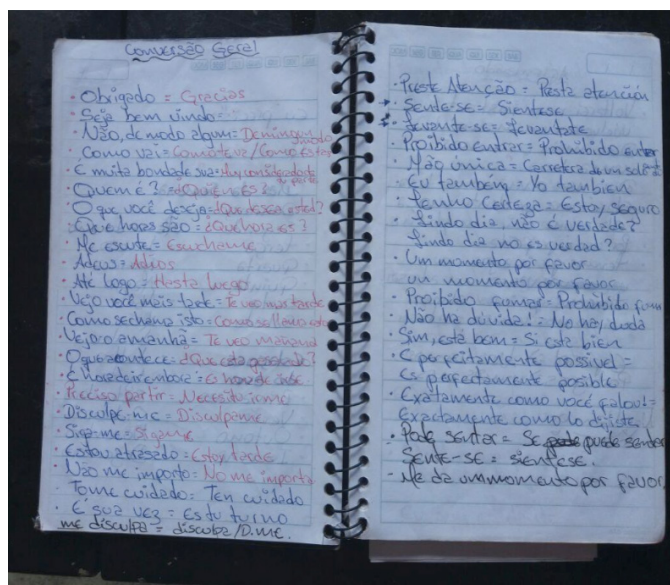 Conversão Geral
• Obrigado = Gracias
• Seja bem vindo =
• Não, de modo algum = De ningun modo
Como vai = Como te va / Como Estas
• É muita bondade sua = Muy considerado
• Quem é? = ¿Quién es?
• O que você deseja = ¿Que desea usted?
• Que horas são = ¿Que hora es?
• Me escute = Escuchame
• Adeus = Adios
• Até logo = Hasta luego
• Vejo você mais tarde = Te veo mas tarde
• Como se chama isto = Como se llama
• Vejo-o amanhã = Te veo mañana
• O que acontece = ¿Que esta pasando?
• É hora de ir embora = Es hora de irse
• Preciso partir = Necesito irme
• Disculpe-me = Disculpame
• Siga-me = Sigame
• Estou atrasado = Estoy tarde
• Não me importo = No me importa
Tome cuidado = Ten cuidado
• É sua vez = Es tu turno
me disculpa = disculpa / D.me.
• Preste Atenção = Presta atención
• Sente-se = Sientese
• Levante-se = Levantate
• Proibido entrar = Prohibido enter
• Mão única = Carretera de un
• Eu também = Yo tambien
• Tenho Certeza = Estoy seguro
• Lindo dia, não é verdade?
Lindo dia no es verdad?
• Um momento por favor
un momento por favor
• Proibido fumar = Prohibido fum
• Não ha dúvida! = No hay duda
• Sim, está bom = Si esta bien
• É perfeitamente possivel =
Es perfectamente posible
• Exatamente como você falou! =
Exactamente como lo dijiste
• Pode sentar = Se puede senter
• Sente-se = sientese.
• Me da um momento por favor